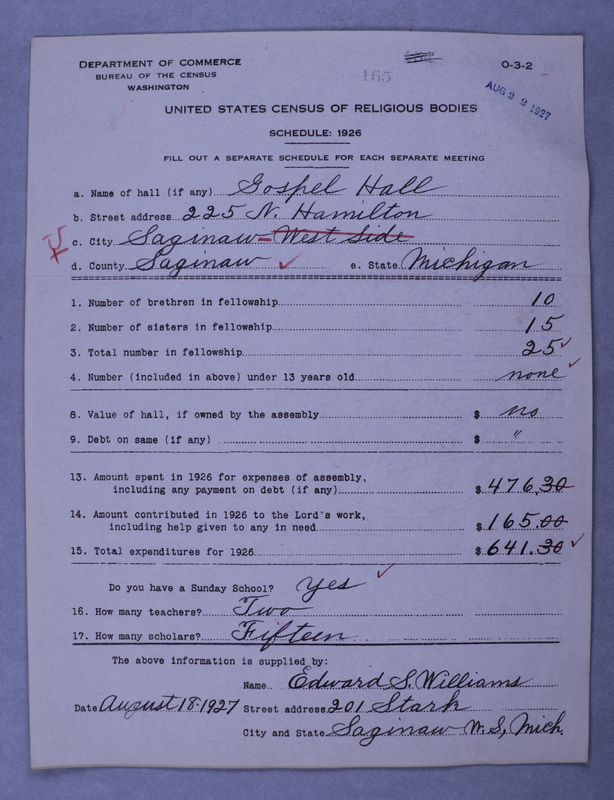 DEPARTMENT OF COMMERCE
BUREAU OF THE CENSUS
WASHINGTON
165
O-3-2
AUG 22 1927
UNITED STATES CENSUS OF RELIGIOUS BODIES
SCHEDULE: 1926
FILL OUT A SEPARATE SCHEDULE FOR EACH SEPARATE MEETING
a. Name of hall (if any) Gospel Hall
b. Street address 225 N. Hamilton
c. City Saginaw - West Side
d. County Saginaw e. State Michigan
1. Number of brethren in fellowship 10
2. Number of sisters in fellowship 15
3. Total number in fellowship 25
4. Number (included in above) under 13 years old none
8. Value of hall, if owned by the assembly $ no
9. Debt on same (if any) $ "
13. Amount spent in 1926 for expenses of assembly,
including any payment on debt (if any) $ 476.30
14. Amount contributed in 1926 to the Lord's work,
including help given to any in need $ 165.00
15. Total expenditures for 1926 $ 641.30
Do you have a Sunday School? Yes
16. How many teachers? Two
17. How many scholars? Fifteen
The above information is supplied by:
Name Edward S. Williams
Date August 18-1927 Street address 201 Stark
City and State Saginaw W.S., Mich.